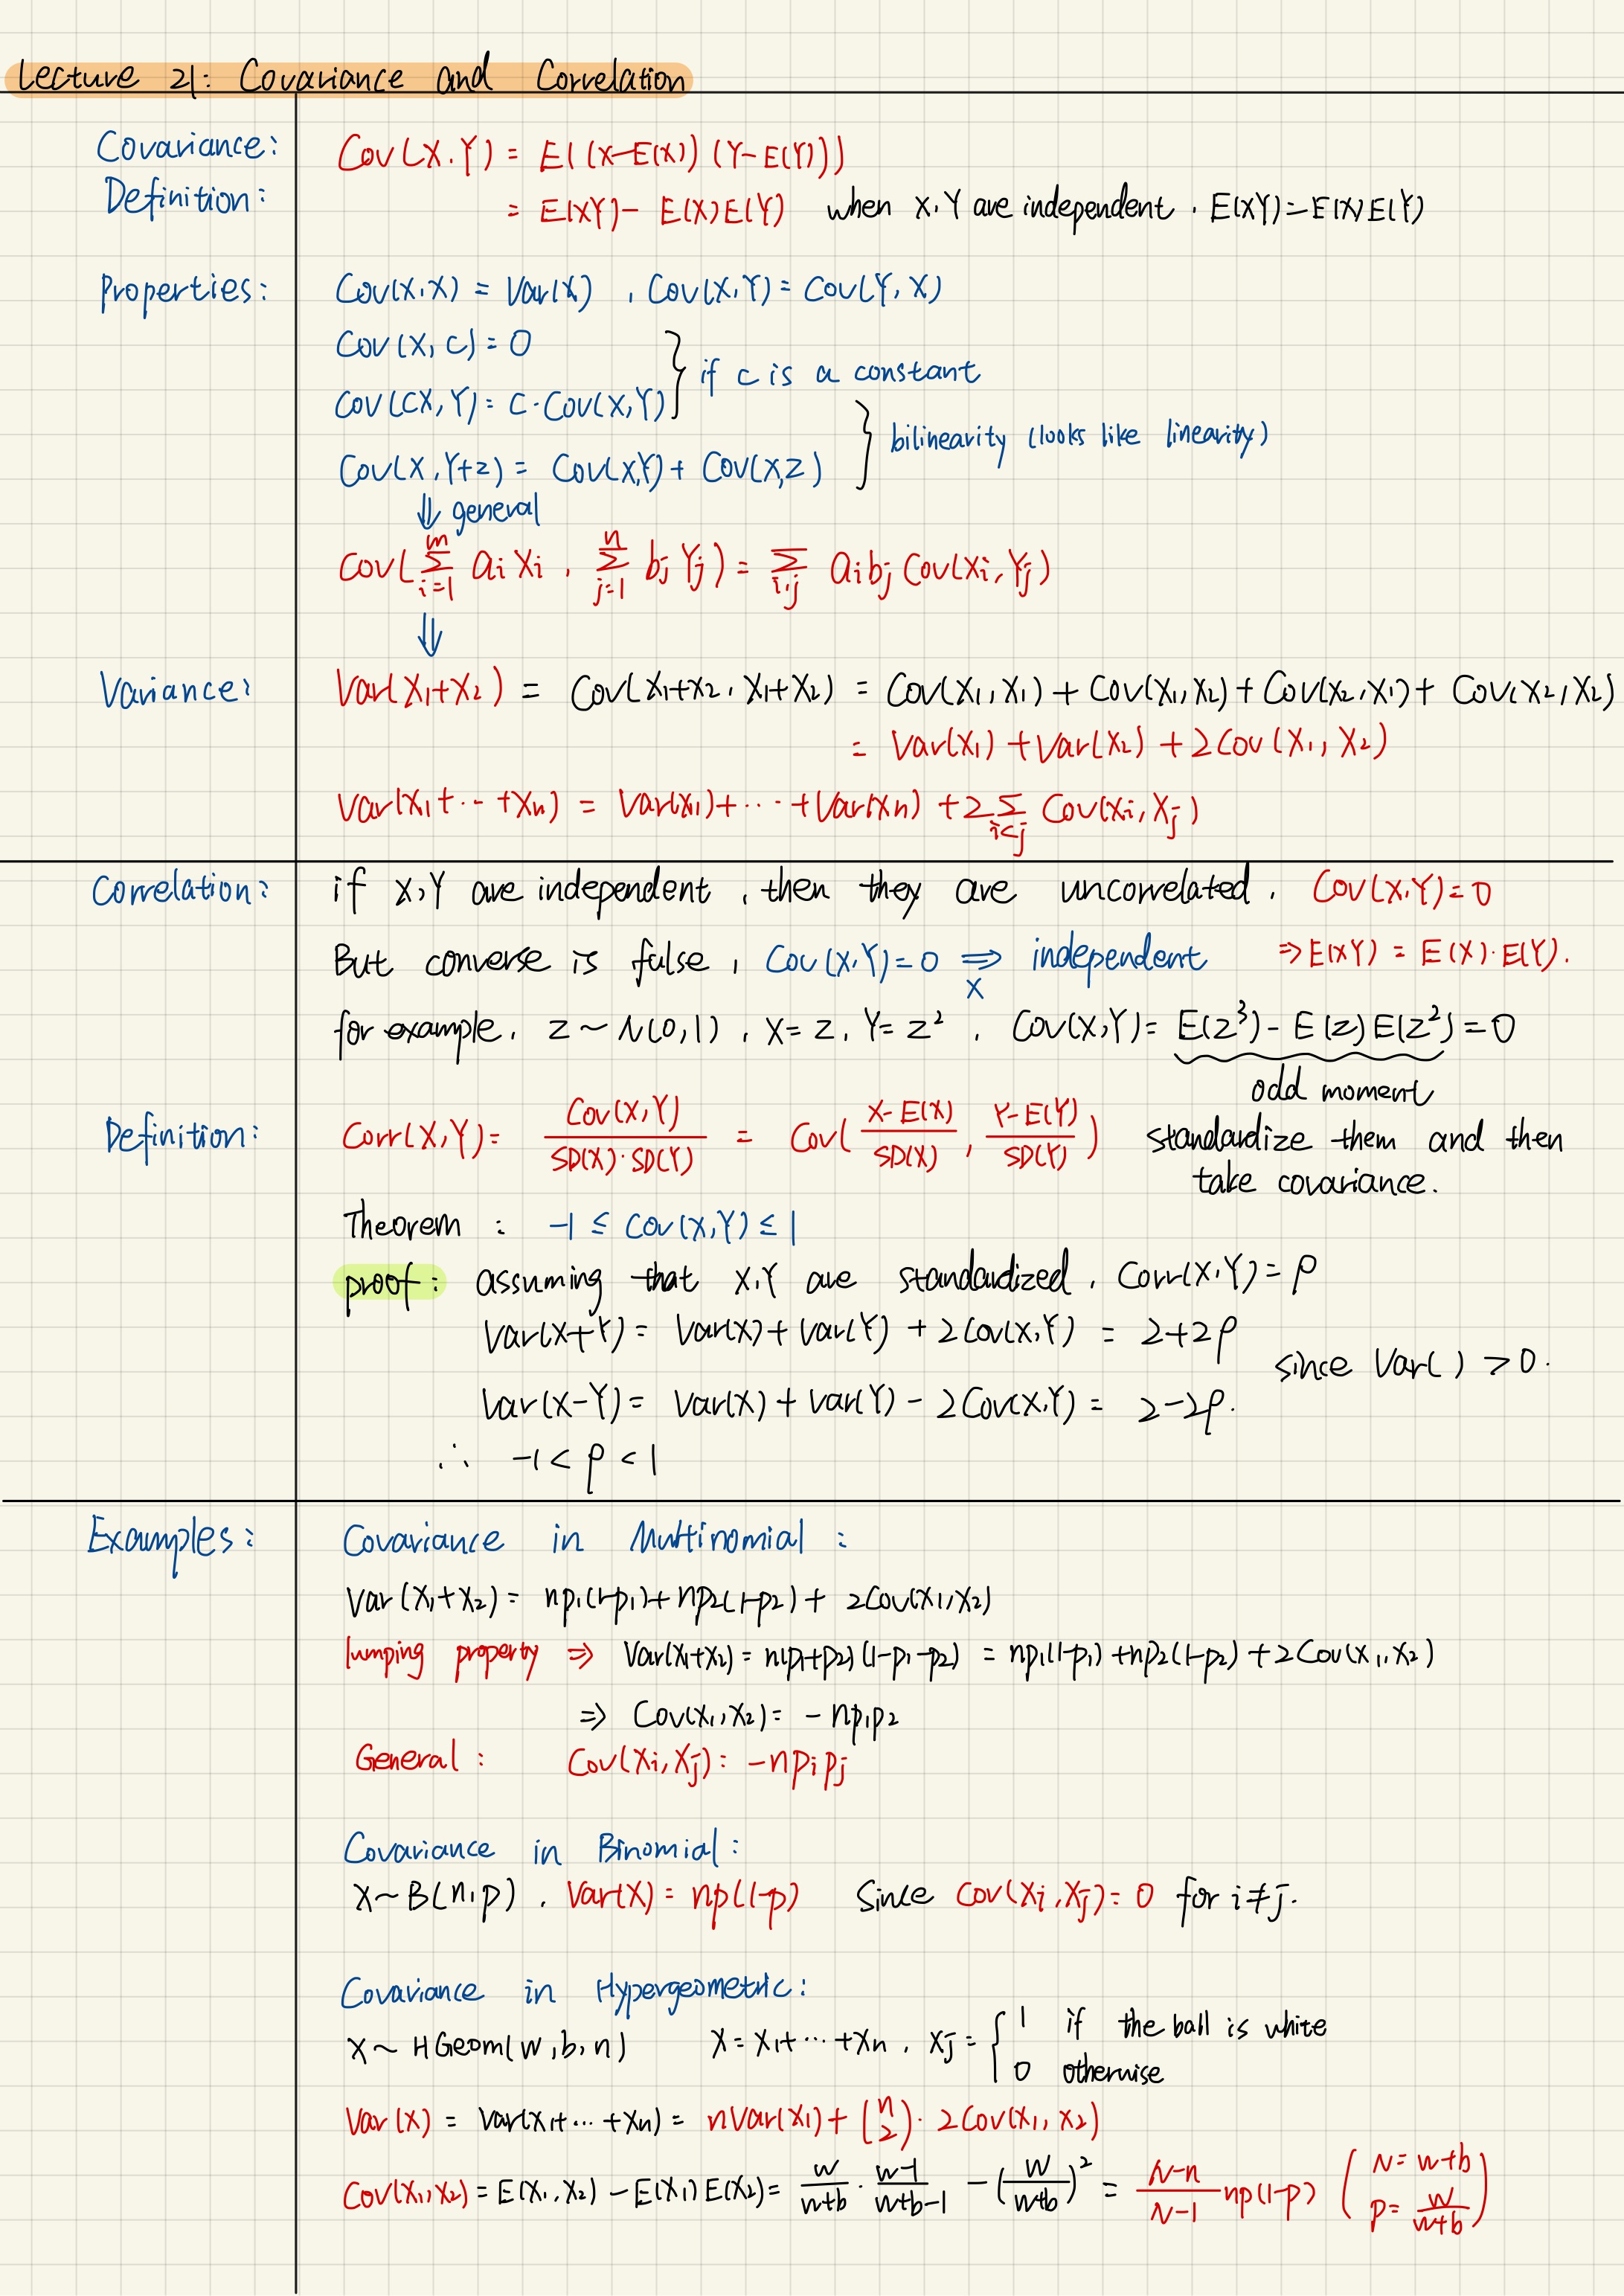 Lecture 21: Covariance and Correlation
Covariance:
Definition:
Cov(X,Y) = E((X-E(X))(Y-E(Y)))
= E(XY) - E(X)E(Y) when X,Y are independent, E(XY)=E(X)E(Y)
Properties:
Cov(X,X) = Var(X), Cov(X,Y) = Cov(Y,X)
Cov(X,c) = 0
Cov(cX,Y) = c·Cov(X,Y) } if c is a constant
Cov(X,Y+Z) = Cov(X,Y) + Cov(X,Z) } bilinearity (looks like linearity)
⇓ general
Cov(∑_{i=1}^{m} a_i X_i, ∑_{j=1}^{n} b_j Y_j) = ∑_{i,j} a_i b_j Cov(X_i, Y_j)
⇓
Variance: Var(X₁+X₂) = Cov(X₁+X₂, X₁+X₂) = Cov(X₁,X₁) + Cov(X₁,X₂) + Cov(X₂,X₁) + Cov(X₂,X₂)
= Var(X₁) + Var(X₂) + 2Cov(X₁,X₂)
Var(X₁+···+Xₙ) = Var(X₁)+···+Var(Xₙ) + 2∑_{i<j} Cov(X_i,X_j)
Correlation: if X,Y are independent, then they are uncorrelated, Cov(X,Y)=0
But converse is false, Cov(X,Y)=0 ⇒ independent ⇒ E(XY) = E(X)·E(Y).
x
for example, Z~N(0,1), X=Z, Y=Z², Cov(X,Y) = E(Z³) - E(Z)E(Z²) = 0
odd moment
Definition: Corr(X,Y) = Cov(X,Y) / (SD(X)·SD(Y)) = Cov((X-E(X))/SD(X), (Y-E(Y))/SD(Y)) standardize them and then
take covariance.
Theorem: -1 ≤ Cov(X,Y) ≤ 1
proof: assuming that X,Y are standardized, Corr(X,Y) = ρ
Var(X+Y) = Var(X) + Var(Y) + 2Cov(X,Y) = 2+2ρ
since Var( ) > 0.
Var(X-Y) = Var(X) + Var(Y) - 2Cov(X,Y) = 2-2ρ.
∴ -1 < ρ < 1
Examples: Covariance in Multinomial:
Var(X₁+X₂) = np₁(1-p₁) + np₂(1-p₂) + 2Cov(X₁,X₂)
lumping property ⇒ Var(X₁+X₂) = n(p₁+p₂)(1-p₁-p₂) = np₁(1-p₁) + np₂(1-p₂) + 2Cov(X₁,X₂)
⇒ Cov(X₁,X₂) = -np₁p₂
General: Cov(X_i,X_j) = -np_ip_j
Covariance in Binomial:
X~B(n,p), Var(X) = np(1-p) Since Cov(X_i,X_j) = 0 for i≠j.
Covariance in Hypergeometric:
X~HGeom(w,b,n) X = X₁+···+Xₙ, X_j = { 1 if the ball is white
0 otherwise
Var(X) = Var(X₁+···+Xₙ) = nVar(X₁) + (n 2)·2Cov(X₁,X₂)
Cov(X₁,X₂) = E(X₁,X₂) - E(X₁)E(X₂) = w/(w+b) · (w-1)/(w+b-1) - (w/(w+b))² = (N-n)/(N-1) np(1-p) (N=w+b
p = w/(w+b))